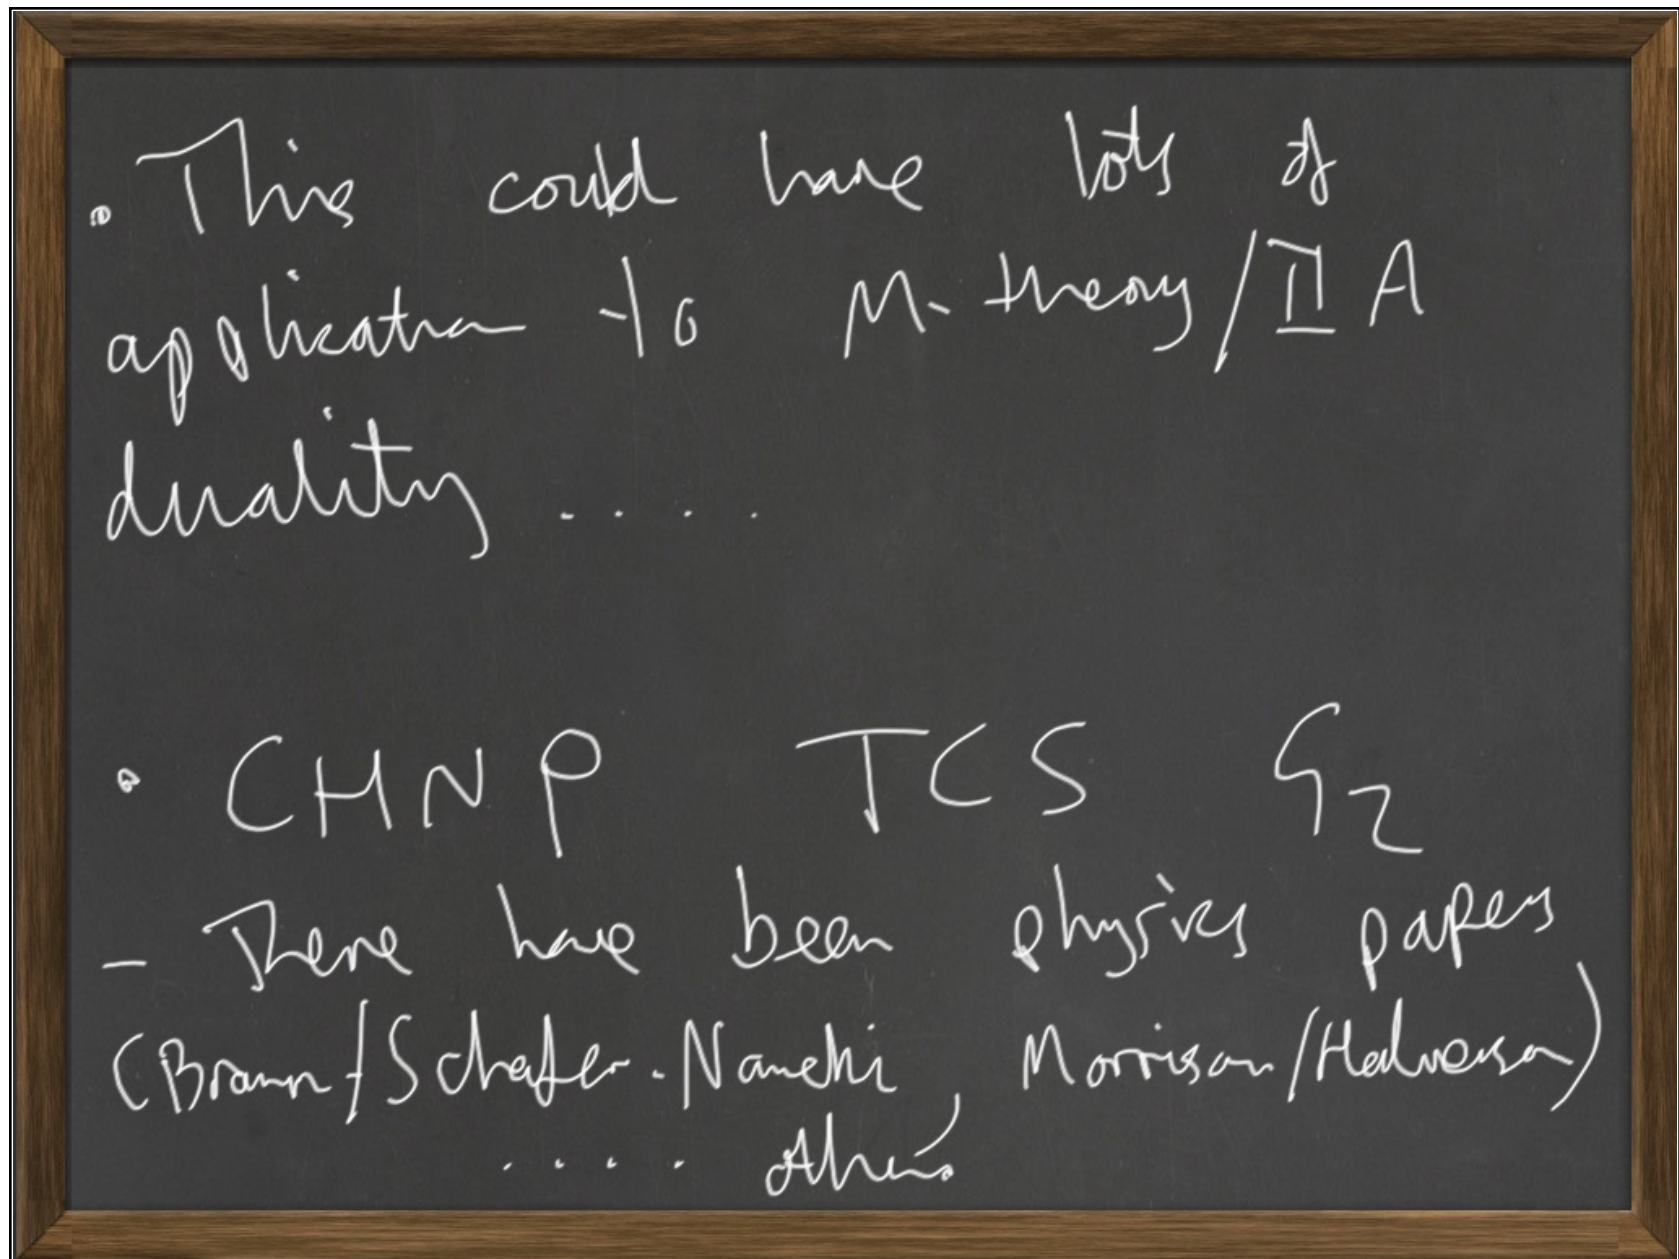 • This could have lots of
application to M-theory/IIA
duality ....
• CHNP TCS G2
- There have been physics papers
(Braun/Schafer-Nameki, Morrison/Halverson)
.... others